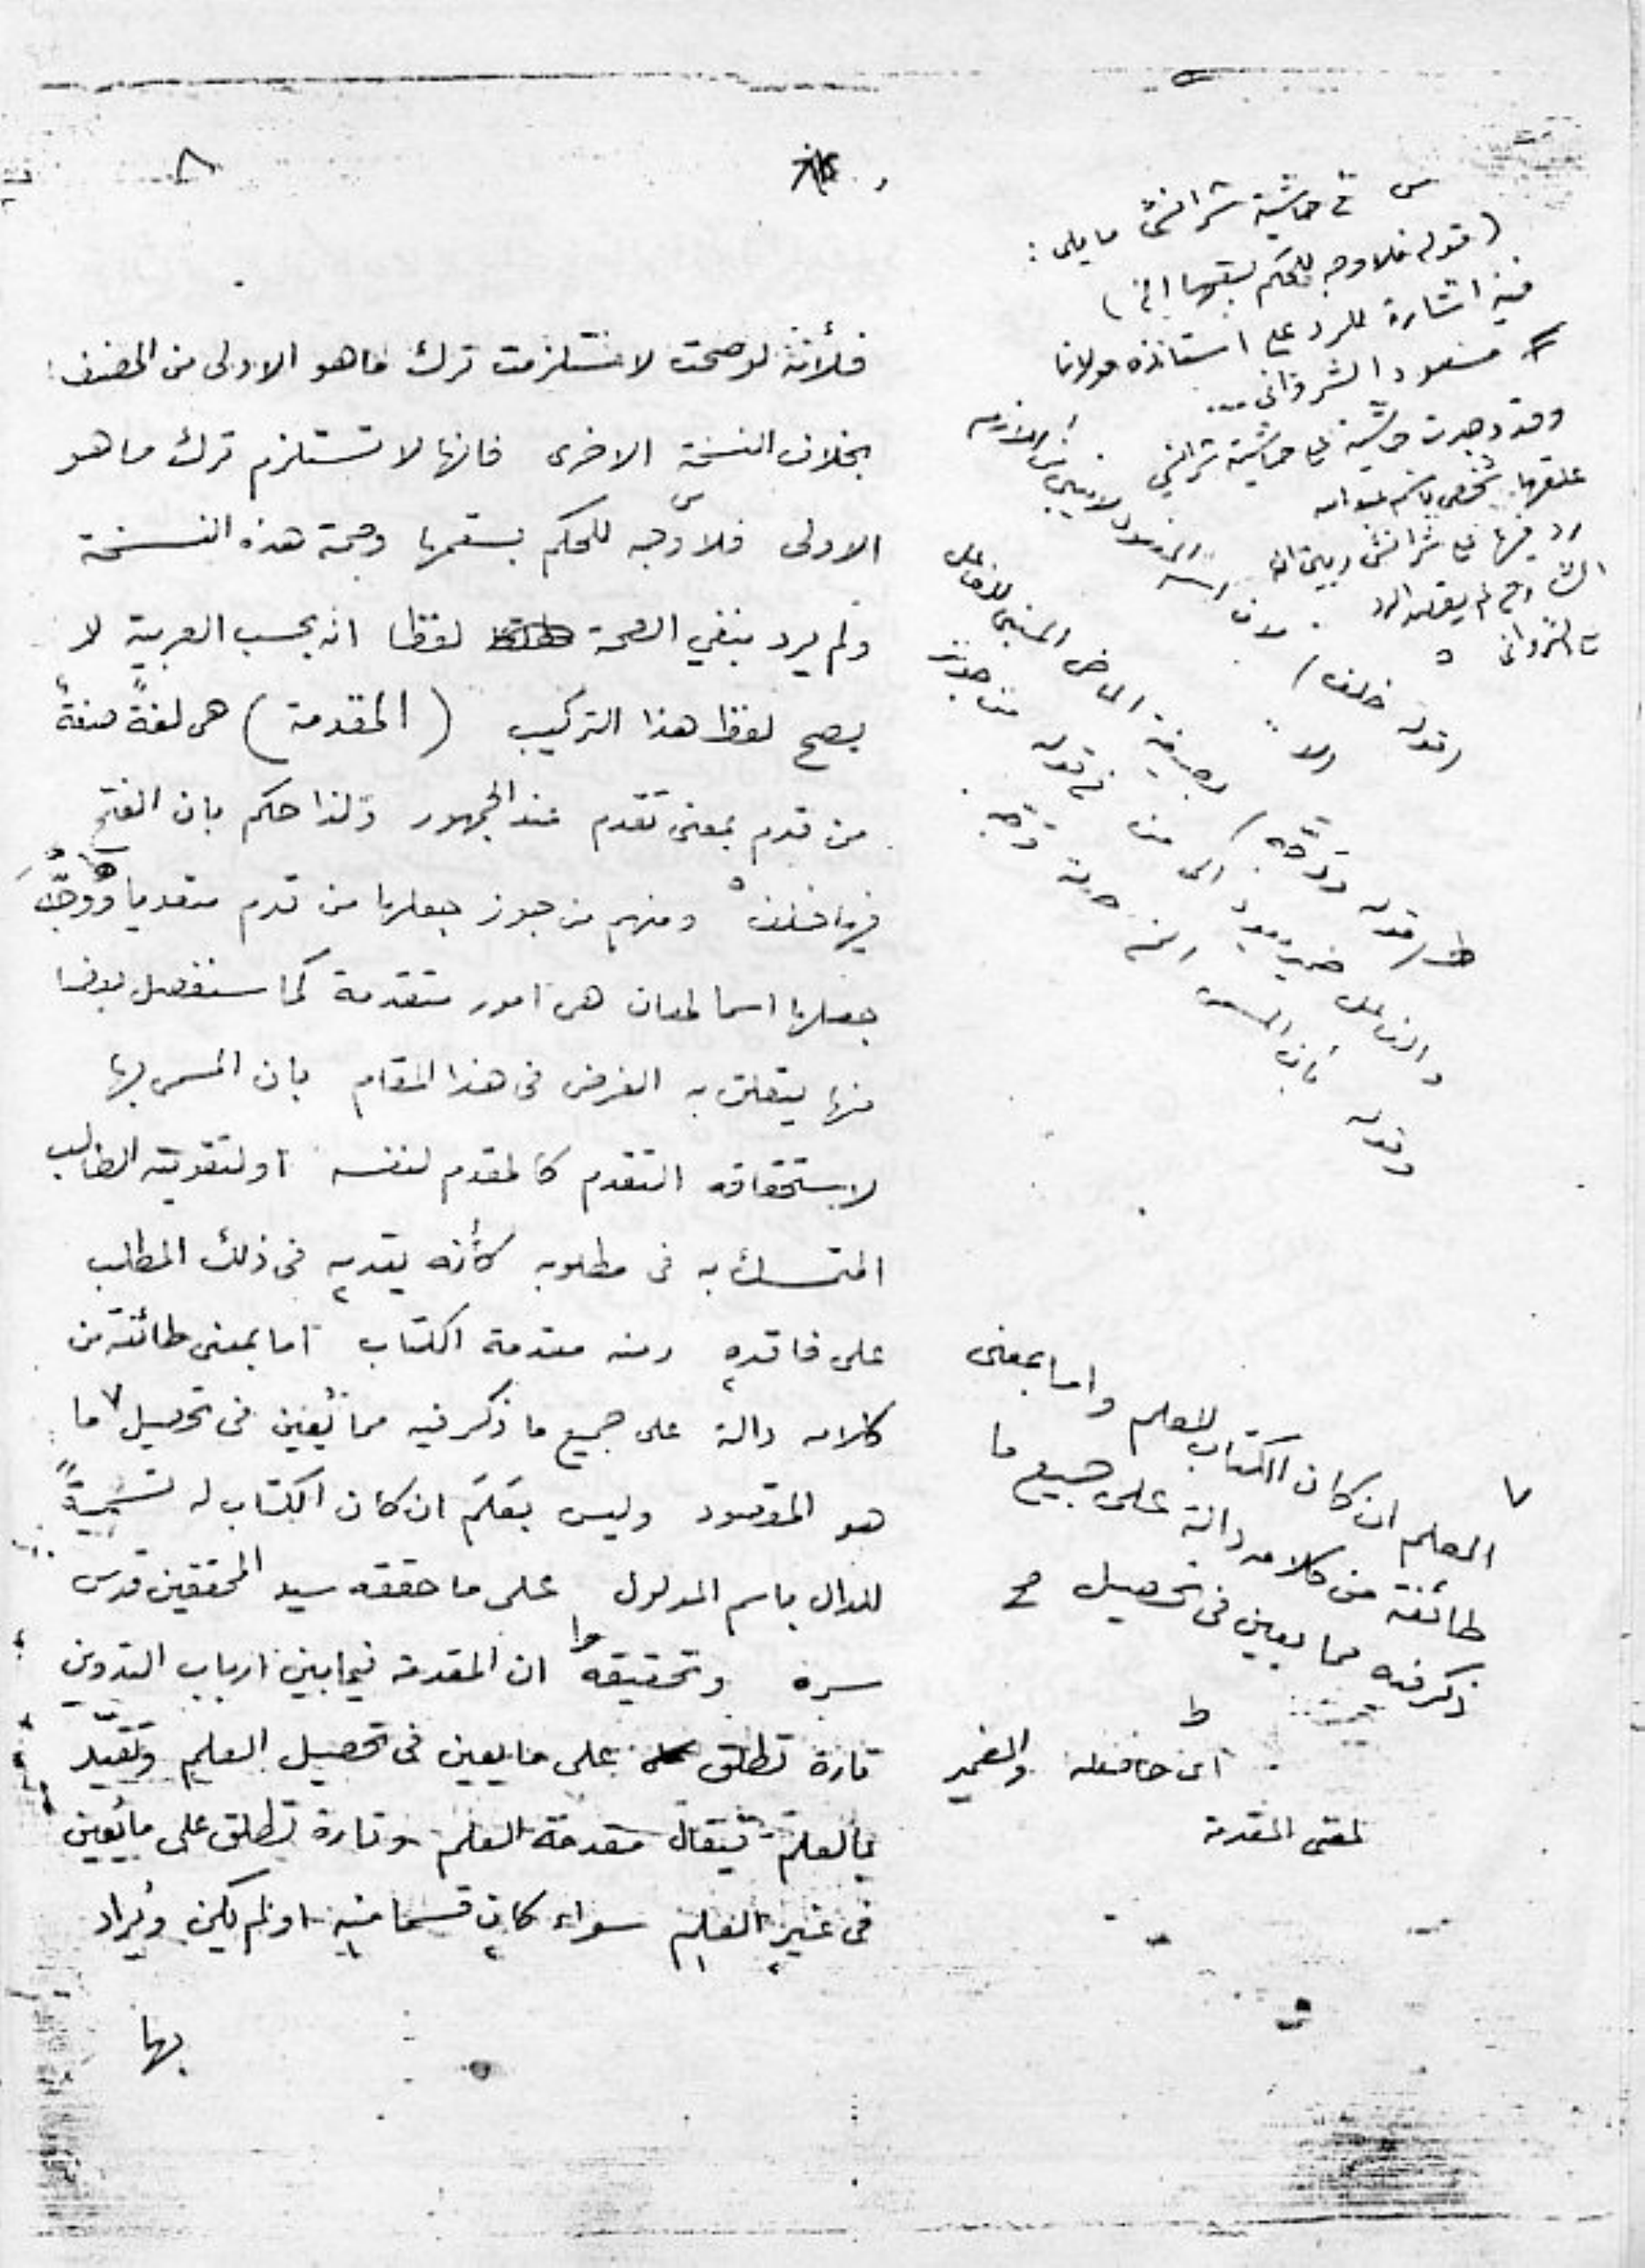 ٨
فلأنه لو صحت لاستلزمت ترك ما هو الاولى من المصنف
بخلاف النسخة الاخرى فانها لا تستلزم ترك ما هو
الاولى فلا وجه للحكم بسقمها وصحة هذه النسخة
ولم يرد بنفي الصحة لفظا انه بحسب العربية لا
يصح لفظا هذا التركيب (المقدمة) هى لغةً صفةٌ
من قدم بمعنى تقدم عند الجمهور ولذا حكم بان الفتح
فيها خلف ومنهم من جوز جعلها من قدم متعديا ووجّه
جعلها اسما لمعان هى امور متقدمة كما سنفصل بعضا
منها يتعلق به الغرض فى هذا المقام بان المسمى بها
لاستحقاقه التقدم كالمقدم لنفسه او لتقويته الطالب
المتمسك به فى مطلوبه كأنه يقدمه فى ذلك المطلب
على فاقده ومنه مقدمة الكتاب اما بمعنى طائفة من
كلامه دالة على جميع ما ذكر فيه مما يُعين فى تحصيل ٧ ما
هو المقصود وليس بعلم ان كان الكتاب له تسميةً
للدال باسم المدلول على ما حققه سيد المحققين قدس
سره وتحقيقه ان المقدمة فيما بين ارباب التدوين
تارة تطلق على ما يعين فى تحصيل العلم وتقيّد
بالعلم فيقال مقدمة العلم وتارة تطلق على ما يُعين
فى غير العلم سواء كان قسما منه او لم يكن ويُراد
بها
س فى حاشية شرانشى ما يلى :
(قوله فلا وجه للحكم بسقمها الخ)
فيه اشارة للرد على استاذه مولانا
مسعود الشروانى ...
وقد وجدت حاشية على حاشية شرانشى
علقها شخص باسم عبد الله
رد فيها على شرانشى وبين ان
الشارح لم يقصد الرد
على الشروانى
(قوله خلف)
(قوله ووجّه) بصيغة الماضى المبنى للفاعل
والفاعل ضمير يعود الى من فى قوله من جوز
وقوله بأن المسمى الخ صلة وجّه .
٧
العلم ان كان الكتاب للعلم واما بمعنى
طائفة من كلامه دالة على جميع ما
ذكر فيه مما يعين فى تحصيل صح
ط
اى حافظه والضمير
لمعنى المقدمة